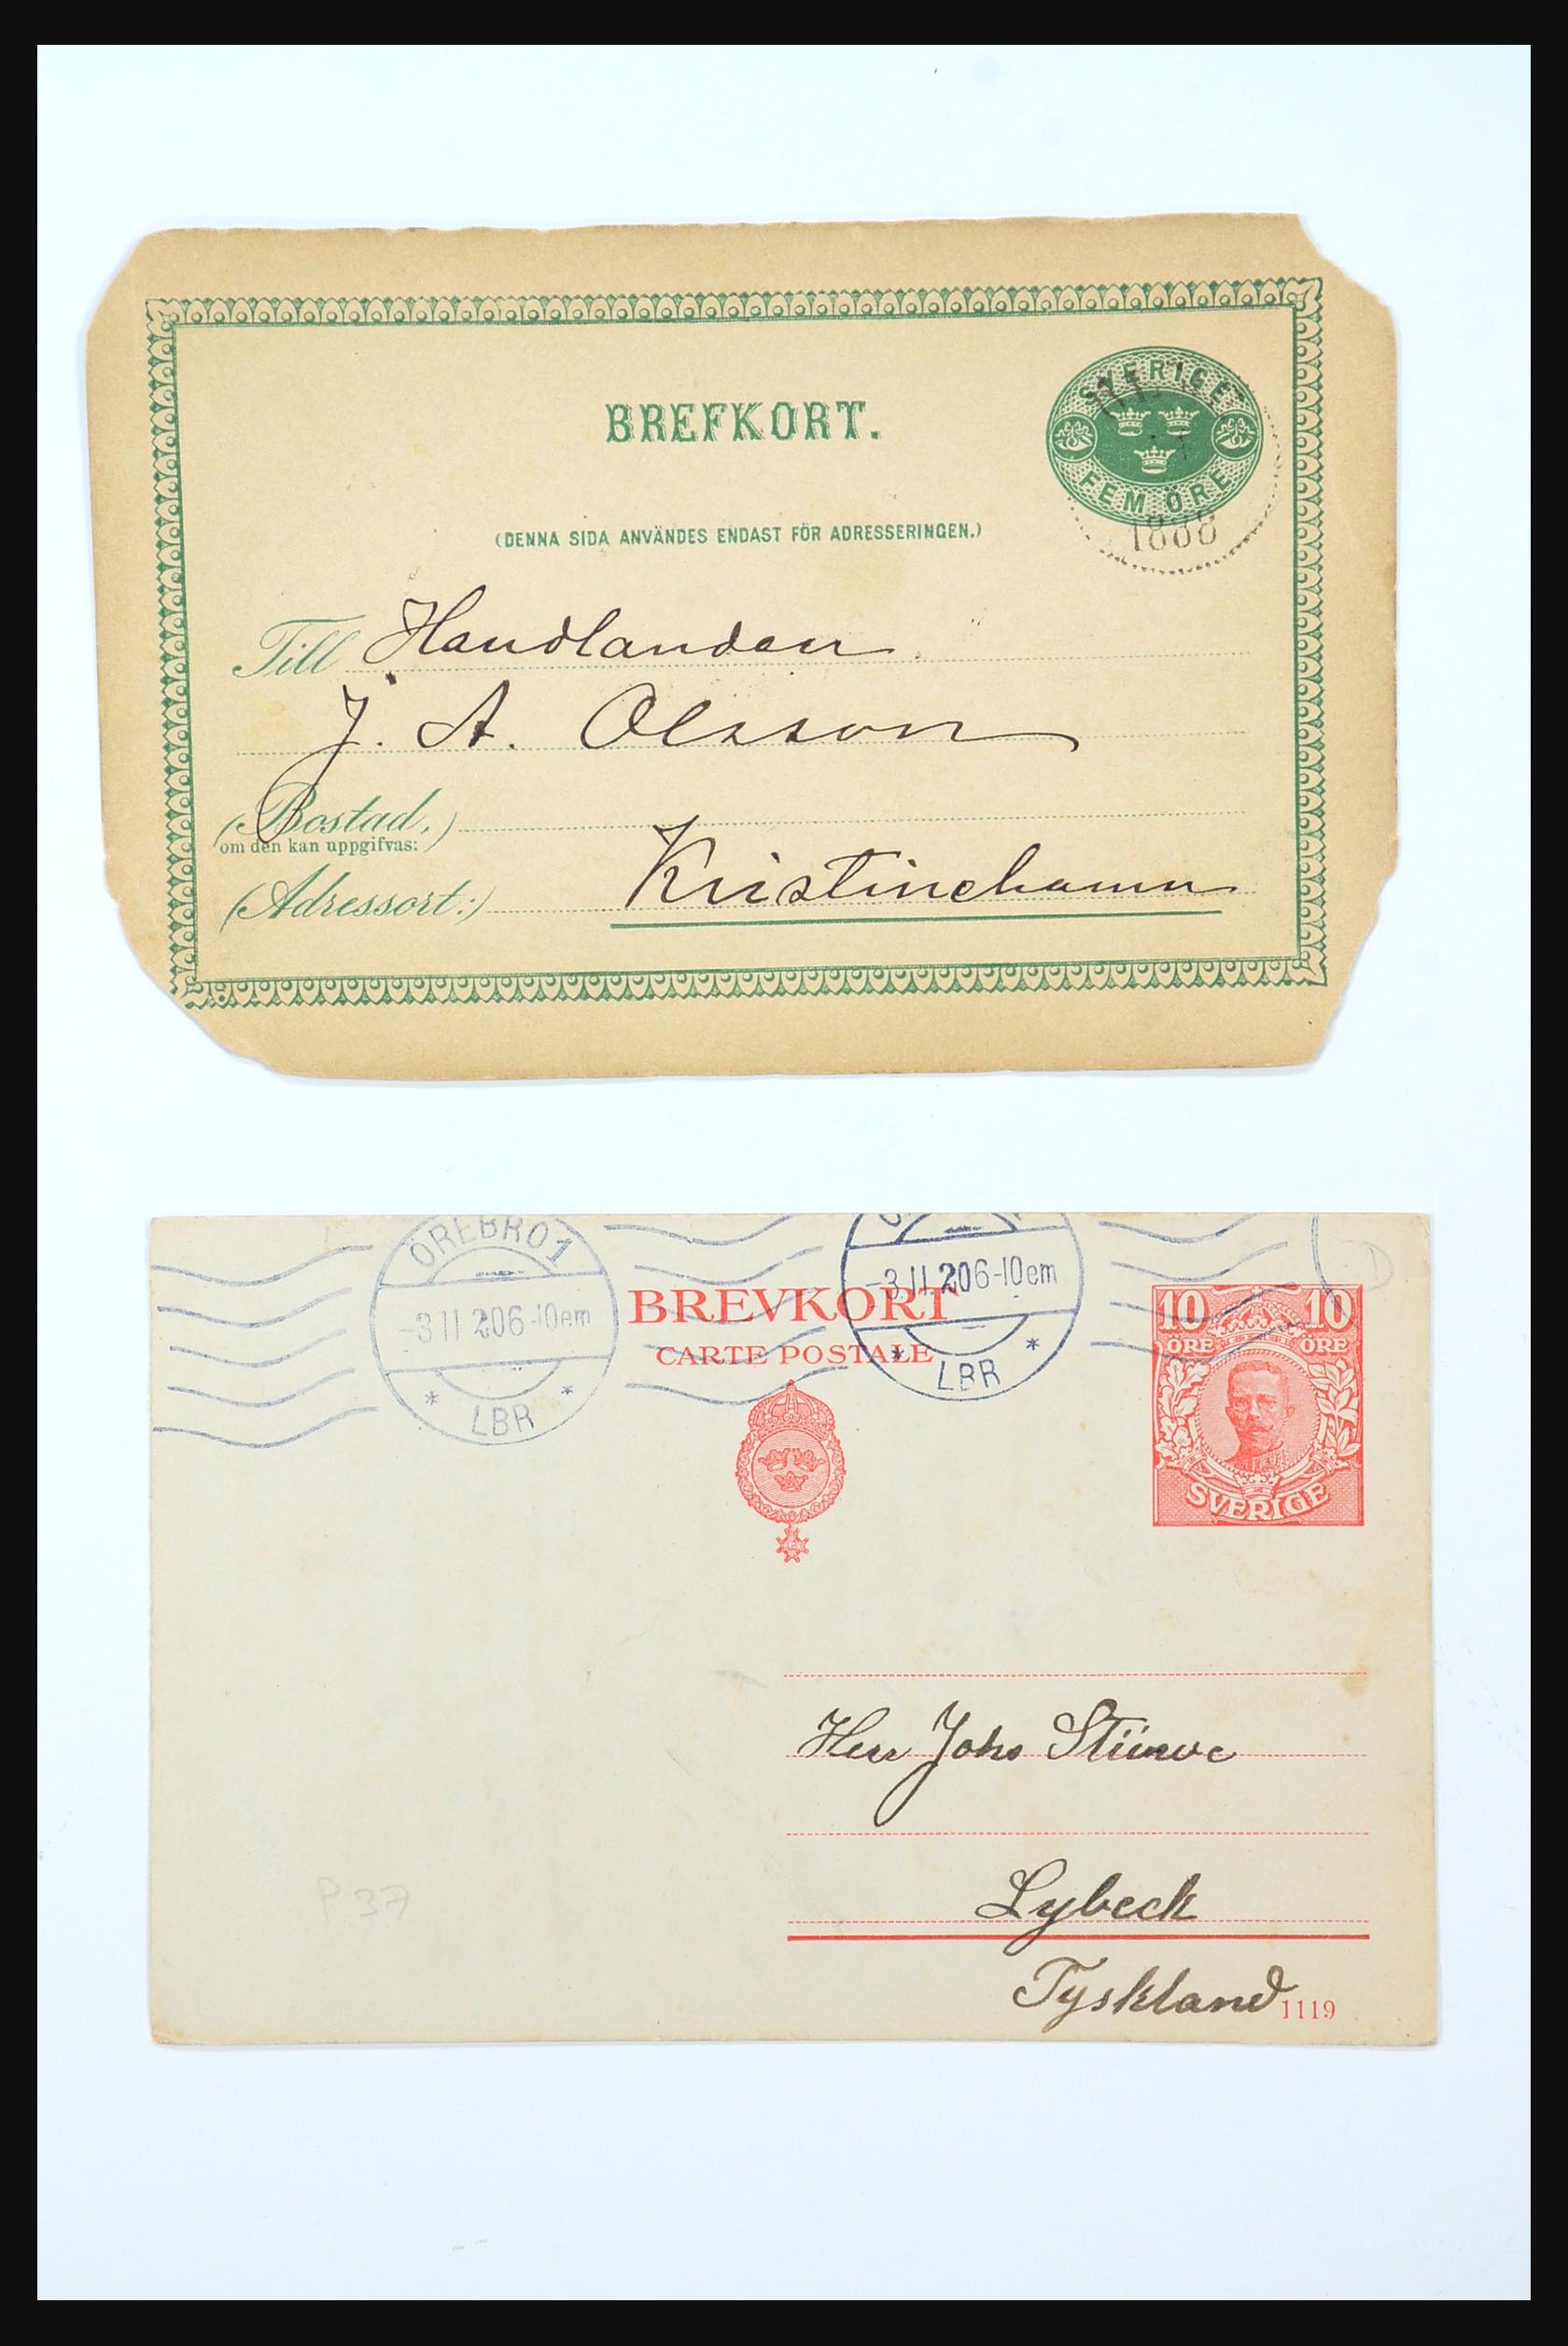 BREFKORT.
SVERIGE
FEM ÖRE
1888
(DENNA SIDA ANVÄNDES ENDAST FÖR ADRESSERINGEN.)
Till Handlanden
J. A. Olsson
(Bostad,)
om den kan uppgifvas:
(Adressort:) Kristinehamn
ÖREBRO 1
-3 11 206-10em
LBR
-3.11.206-10em
LBR
D
BREVKORT
CARTE POSTALE
10 10
ÖRE ÖRE
SVERIGE
Herr Johs Stüwe
P 37
Lybeck
Tyskland
1119